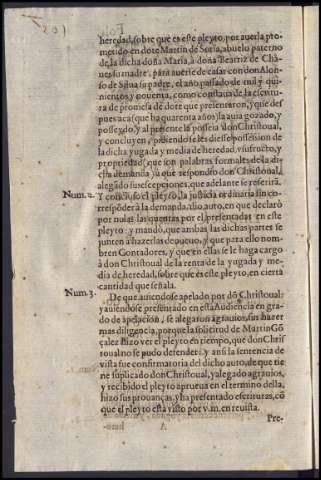 heredad, sobre que es este pleyto, por auerla pro-
metido en dote Martin de Soria, abuelo paterno
de la dicha doña Maria, à doña Beatriz de Cha-
ues su madre, para auerse de casar con don Alon-
so de Silua su padre, el año passado de mil y qui-
nientos y nouenta, como constaua de la escritu-
ra de promesa de dote que presentaron, y que des
pues acà (que ha quarenta años) la auia gozado, y
posseydo, y al presente la posseia don Christoual,
y concluyen, pidiendo se les diesse possession de
la dicha yugada y media de heredad, vsufruto, y
propriedad (que son palabras formales de la di-
cha demanda) à que respondio don Christoual, y
alegado sus excepciones, que adelante se referirà.
Num. 2. Y concluso el pleyto, la justicia ordinaria sin co-
rresponder à la demanda, dio auto, en que declarò
por nulas las quentas por el presentadas en este
pleyto: y mandò, que ambas las dichas partes se
junten à hazerlas de nueuo, y que para ello nom-
bren Contadores, y que en ellas se le haga cargo
à don Christoual de la renta de la yugada y me-
dia de heredad, sobre que es este pleyto, en cierta
cantidad que señala.
Num. 3. De que auiendose apelado por dō Christoual:
y auiendose presentado en esta Audiencia en gra-
do de apelacion, se alegaron agrauios, sin hazer
mas diligencia, porque la solicitud de Martin Gō
çalez hizo ver el pleyto en tiempo, que don Chris
toual no se pudo defender: y ansi la sentencia de
vista fue confirmatoria del dicho auto, de que tie
ne suplicado don Christoual, y alegado agrauios,
y recibido el pleyto a prueua en el termino della,
hizo sus prouanças, y ha presentado escrituras, cō
que el pleyto està visto por v.m. en reuista.
Pre-